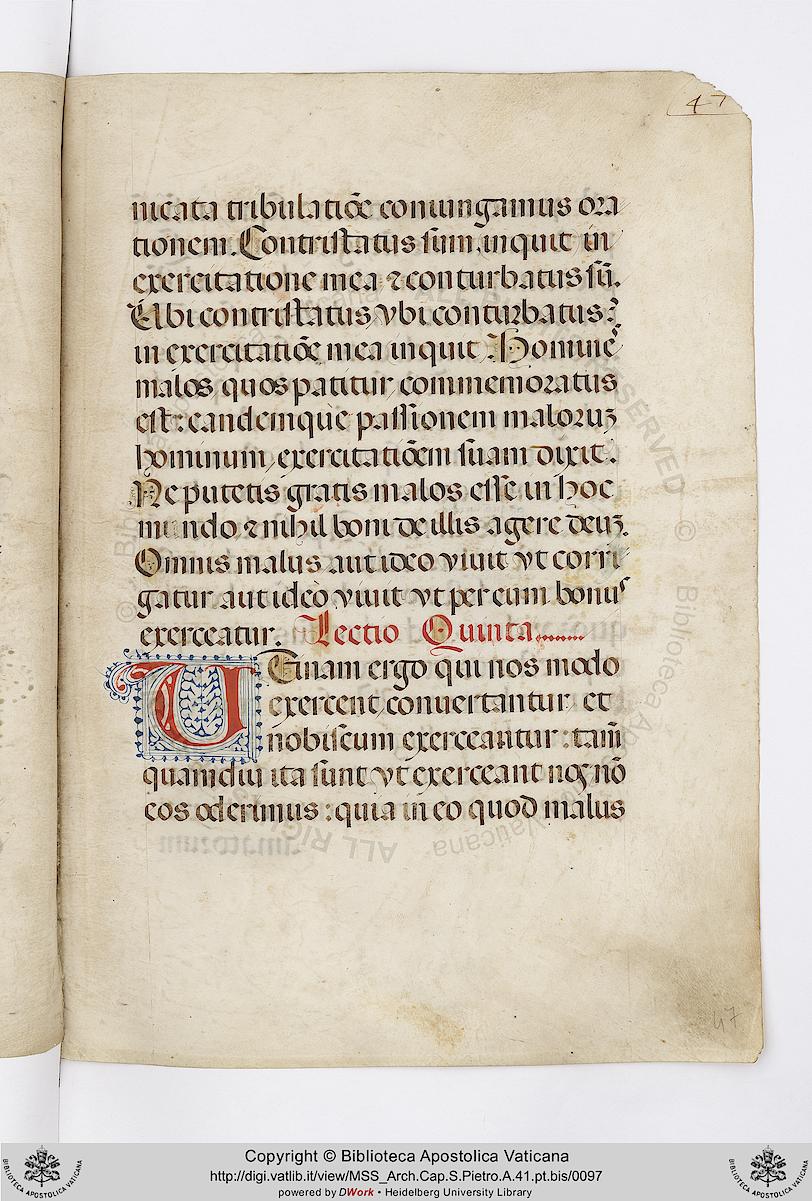 47
nicata tribulatiõe coniungamus ora
tionem. Contristatus sum, inquit in
exercitatione mea ⁊ conturbatus sũ.
Ubi contristatus vbi conturbatus?
in exercitatiõe mea inquit. Homine
malos quos patitur commemoratus
est: eandemque passionem maloruꝫ
hominum, exercitatiõem suam dixit.
Ne putetis gratis malos esse in hoc
mundo ⁊ nihil boni de illis agere deuꝫ.
Omnis malus aut ideo viuit vt corri
gatur aut ideo viuit vt per eum bonus
exerceatur. Lectio Quinta
UTinam ergo qui nos modo
exercent conuertantur et
nobiscum exerceantur: tam̃
quamdiu ita sunt vt exerceant nos nõ
eos oderimus: quia in eo quod malus
47
Copyright © Biblioteca Apostolica Vaticana
http://digi.vatlib.it/view/MSS_Arch.Cap.S.Pietro.A.41.pt.bis/0097
powered by DWork • Heidelberg University Library